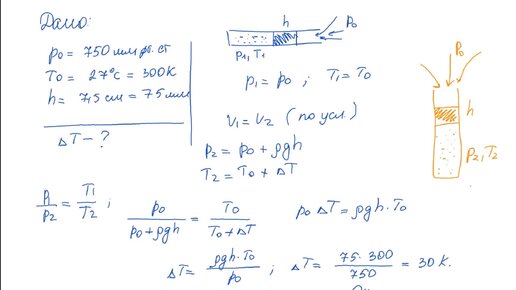 Дано:
p₀ = 750 мм рт. ст
T₀ = 27°C = 300K
h = 7,5 см = 75 мм
ΔT – ?
h
p₀
p₁, T₁
p₁ = p₀ ; T₁ = T₀
V₁ = V₂ (по усл.)
p₂ = p₀ + ρgh
T₂ = T₀ + ΔT
p₀
h
p₂, T₂
p₁/p₂ = T₁/T₂ ; p₀/(p₀ + ρgh) = T₀/(T₀ + ΔT) p₀ ΔT = ρgh · T₀
ΔT = ρgh · T₀/p₀ ; ΔT = 75 · 300/750 = 30 K.